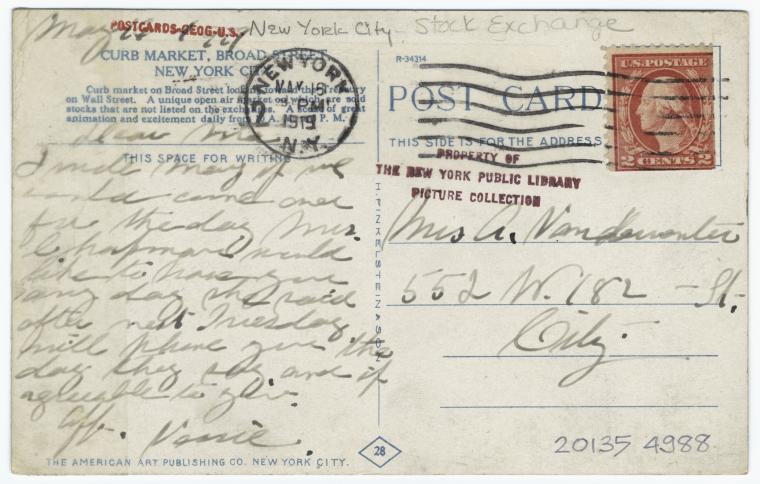 POSTCARDS-GEOG-U.S.
New York City - Stock Exchange
CURB MARKET, BROAD STREET
NEW YORK CITY
Curb market on Broad Street looking toward the Treasury
on Wall Street. A unique open air market on which are sold
stocks that are not listed on the exchange. A scene of great
animation and excitement daily from A.M. P.M.
R-34314
POST CARD
THIS SIDE IS FOR THE ADDRESS
THIS SPACE FOR WRITING
NEW YORK
MAY 15
1919
N.Y.
U.S. POSTAGE
2 CENTS 2
PROPERTY OF
THE NEW YORK PUBLIC LIBRARY
PICTURE COLLECTION
Dear
I wrote Mary if we
could come over
for the day Mrs.
Chapman would
like to have you
any day she said
after next Tuesday
will phone you the
day they say and if
agreeable to you.
Aff.
H. FINKELSTEIN & SON
Mrs A. Vandeventer
552 W. 182 - St.
City.
28
THE AMERICAN ART PUBLISHING CO. NEW YORK CITY.
20135 4988